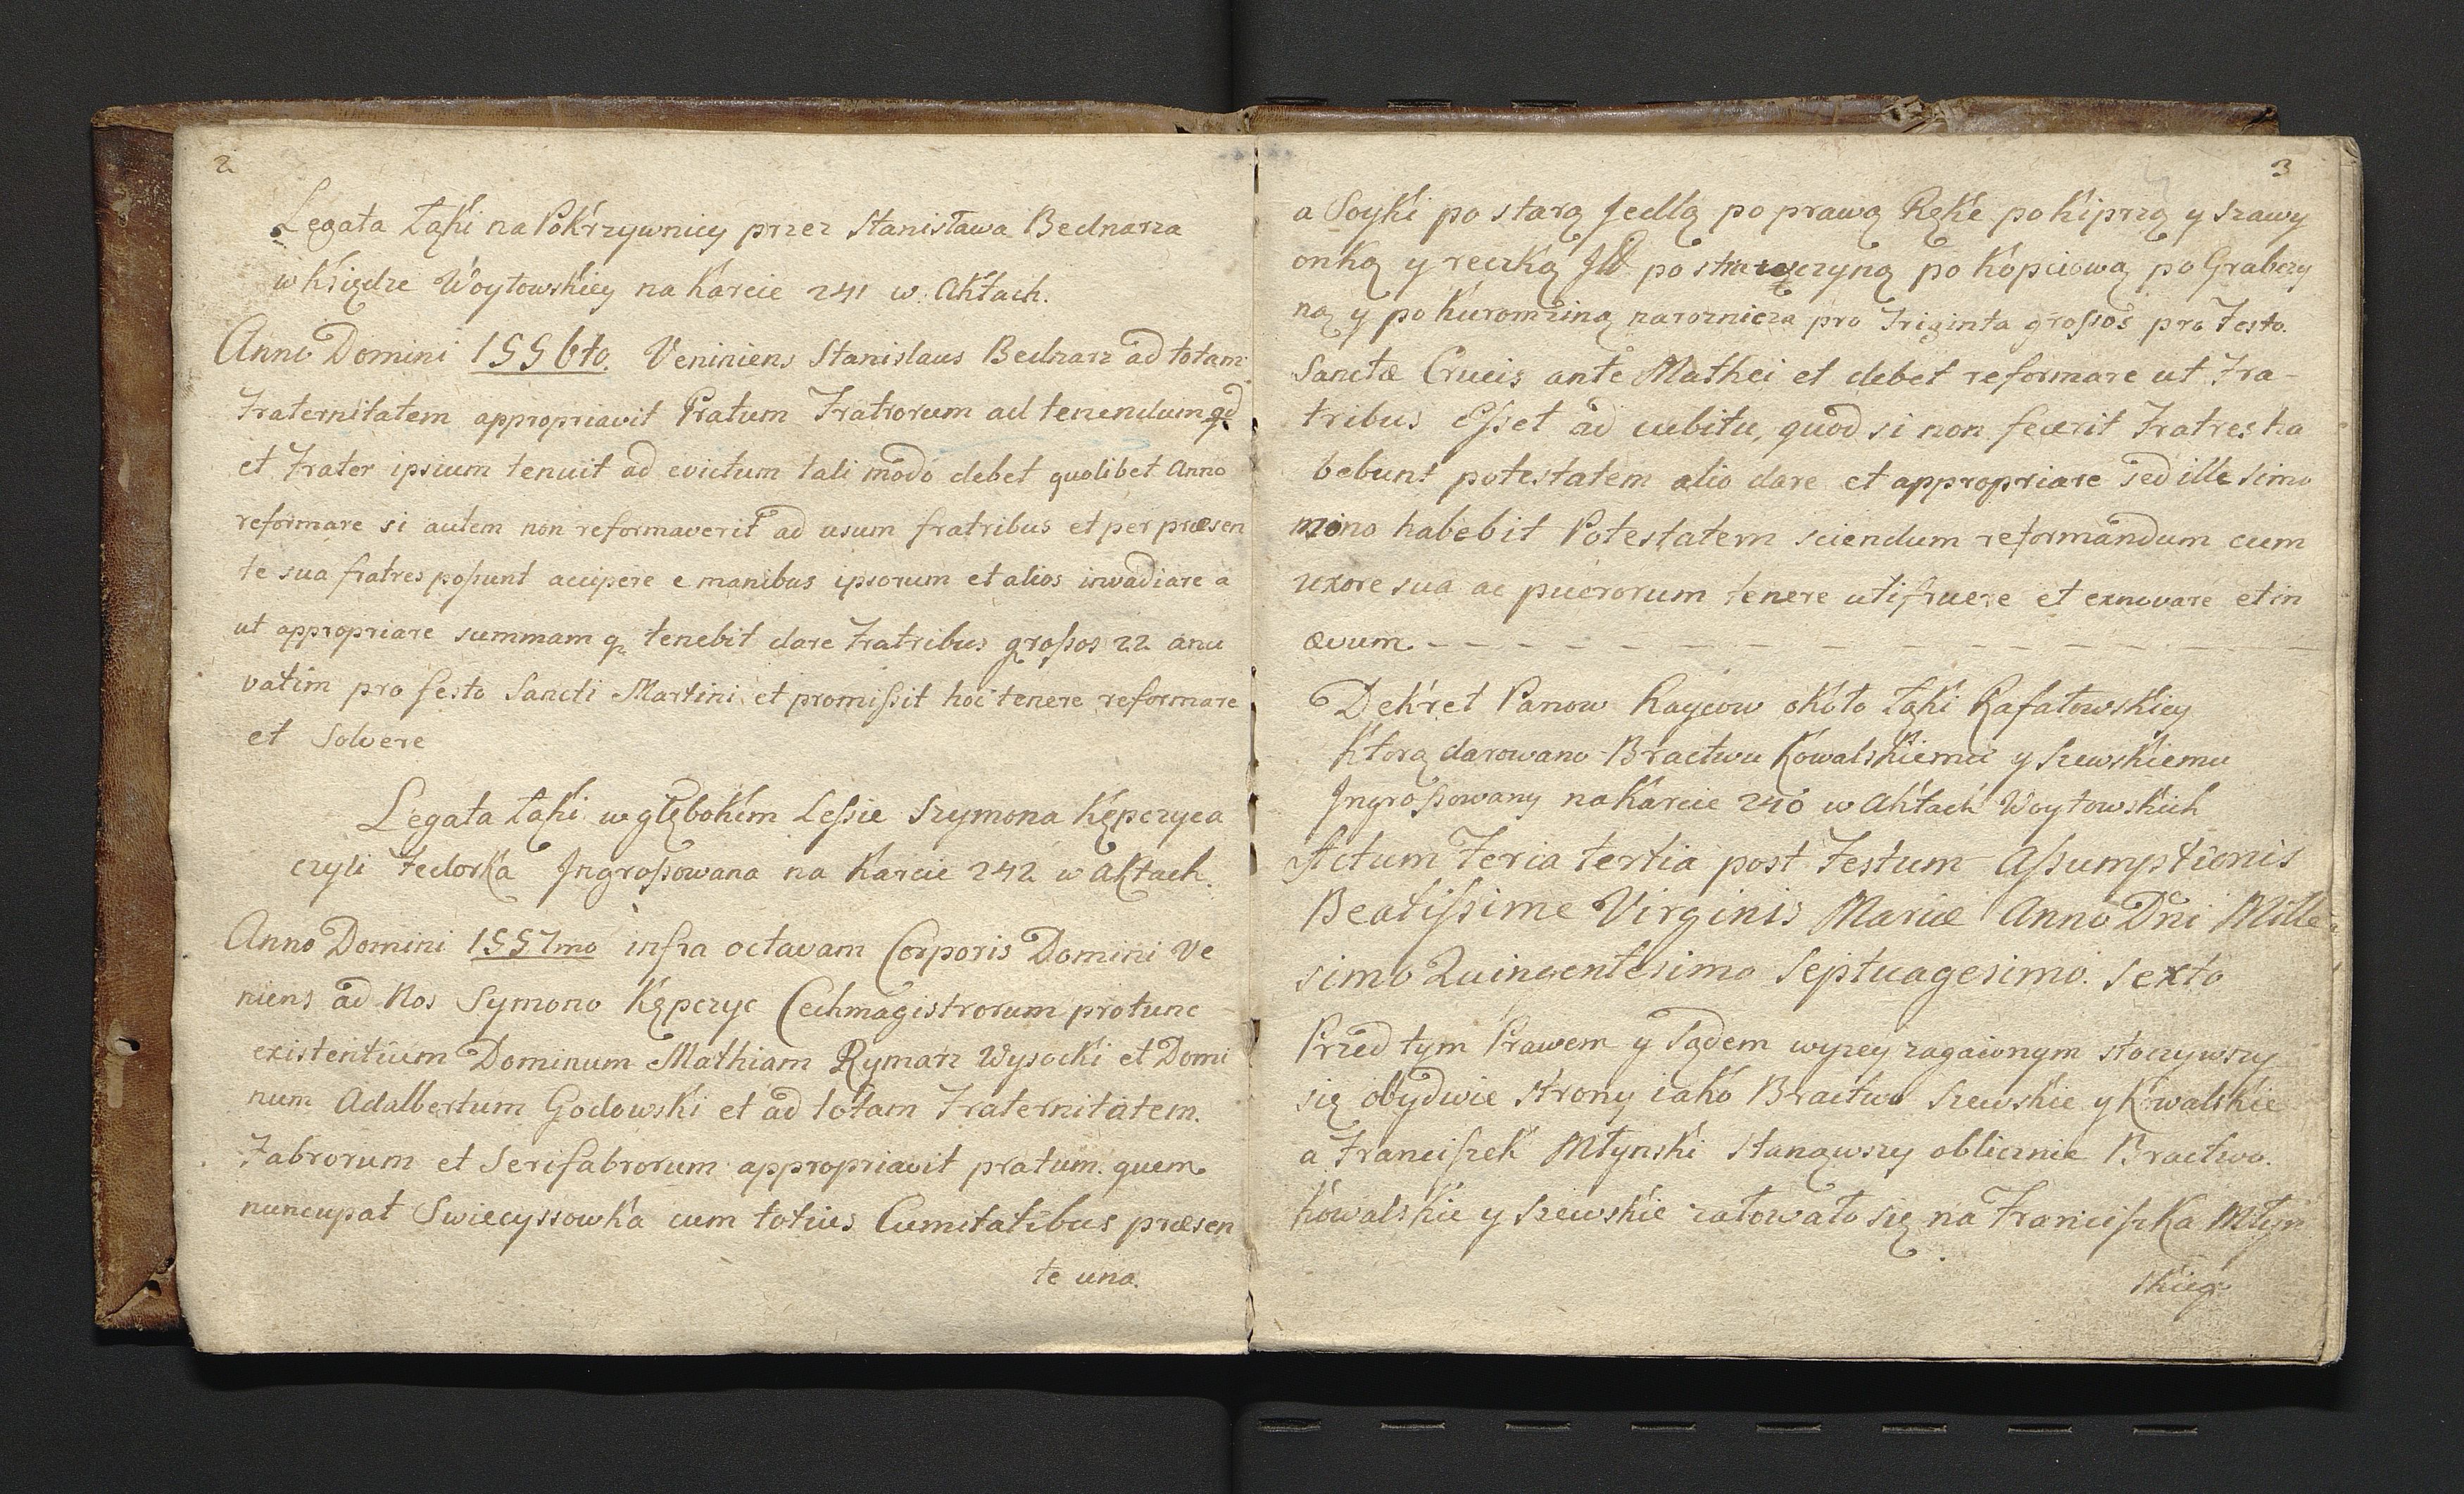 2
Legata Łąki na Pokrzywnicy przez Stanisława Bednarza
w Księdze Woytowskiey na Karcie 241 w Aktach.
Anno Domini 1556to. Veniniens Stanislaus Bednarz ad totam
Fraternitatem appropriavit Pratum Fratrorum ad tenendum qd
et Frater ipsium tenuit ad evictum tali modo debet quolibet Anno
reformare si autem non reformaverit ad usum fratribus et per præsen
te sua fratres poßunt accipere e manibus ipsorum et alios invadiare a
ut appropriare summam q tenebit dare Fratribus großos 22 anu
vatim pro festo Sancti Martini et promißit hoc tenere reformare
et Solvere
Legata Łąki w głębokim Leßie Szymona Kępczyca
czyli Fedorka Jngroßowana na Karcie 242 w Aktach.
Anno Domini 1557mo infra octavam Corporis Domini Ve
niens ad Nos Symono Kępczyc Cechmagistrorum protunc
existentium Dominum Mathiam Rymarz Wysocki et Domi
num Adalbertum Godowski et ad totam Fraternitatem.
Fabrorum et Serifabrorum appropriavit pratum. quem
nuncupat Swiecyssowka cum totius Cumitatibus præsen
te una.
3
a Soyki po starą Jedlą po prawą Rękę po kiprzą y szawy
onką y reczką po po Kopciową po Grabczy
ną y po Kuromziną naroznicza pro Triginta großos pro Festo.
Sanctæ Crucis ante Mathei et debet reformare ut Fra-
tribus Eßet ad cubitu, quod si non fecerit Fratres ha
bebunt potestatem alio dare et appropriare sed ille Simo
mono habebit Potestatem sciendum reformandum cum
uxore sua ac puerorum tenere utifruere et exnovare et in
ævum - - - - - - - - - - - - - -
Dekret Panow Raycow około Łąki Rafałowskiey
Ktorą darowano Bractwu Kowalskiemu y Szewskiemu
Jngroßowany na Karcie 240 w Aktach Woytowskich
Actum Feria tertia post Festum Aßumptionis
Beatißime Virginis Mariæ Anno Dni Mille
simo Quingentesimo Septuagesimo. Sexto
Przed tym Prawem y Sądem wyzey zagaionym stoczywszy
się obydwie strony iako Bractwo Szewskie y Kowalskie
a Francißek Młynski Stanąwszy oblicznie Bractwo.
Kowalskie y Szewskie załowało się na Francißka Młyn
skieg